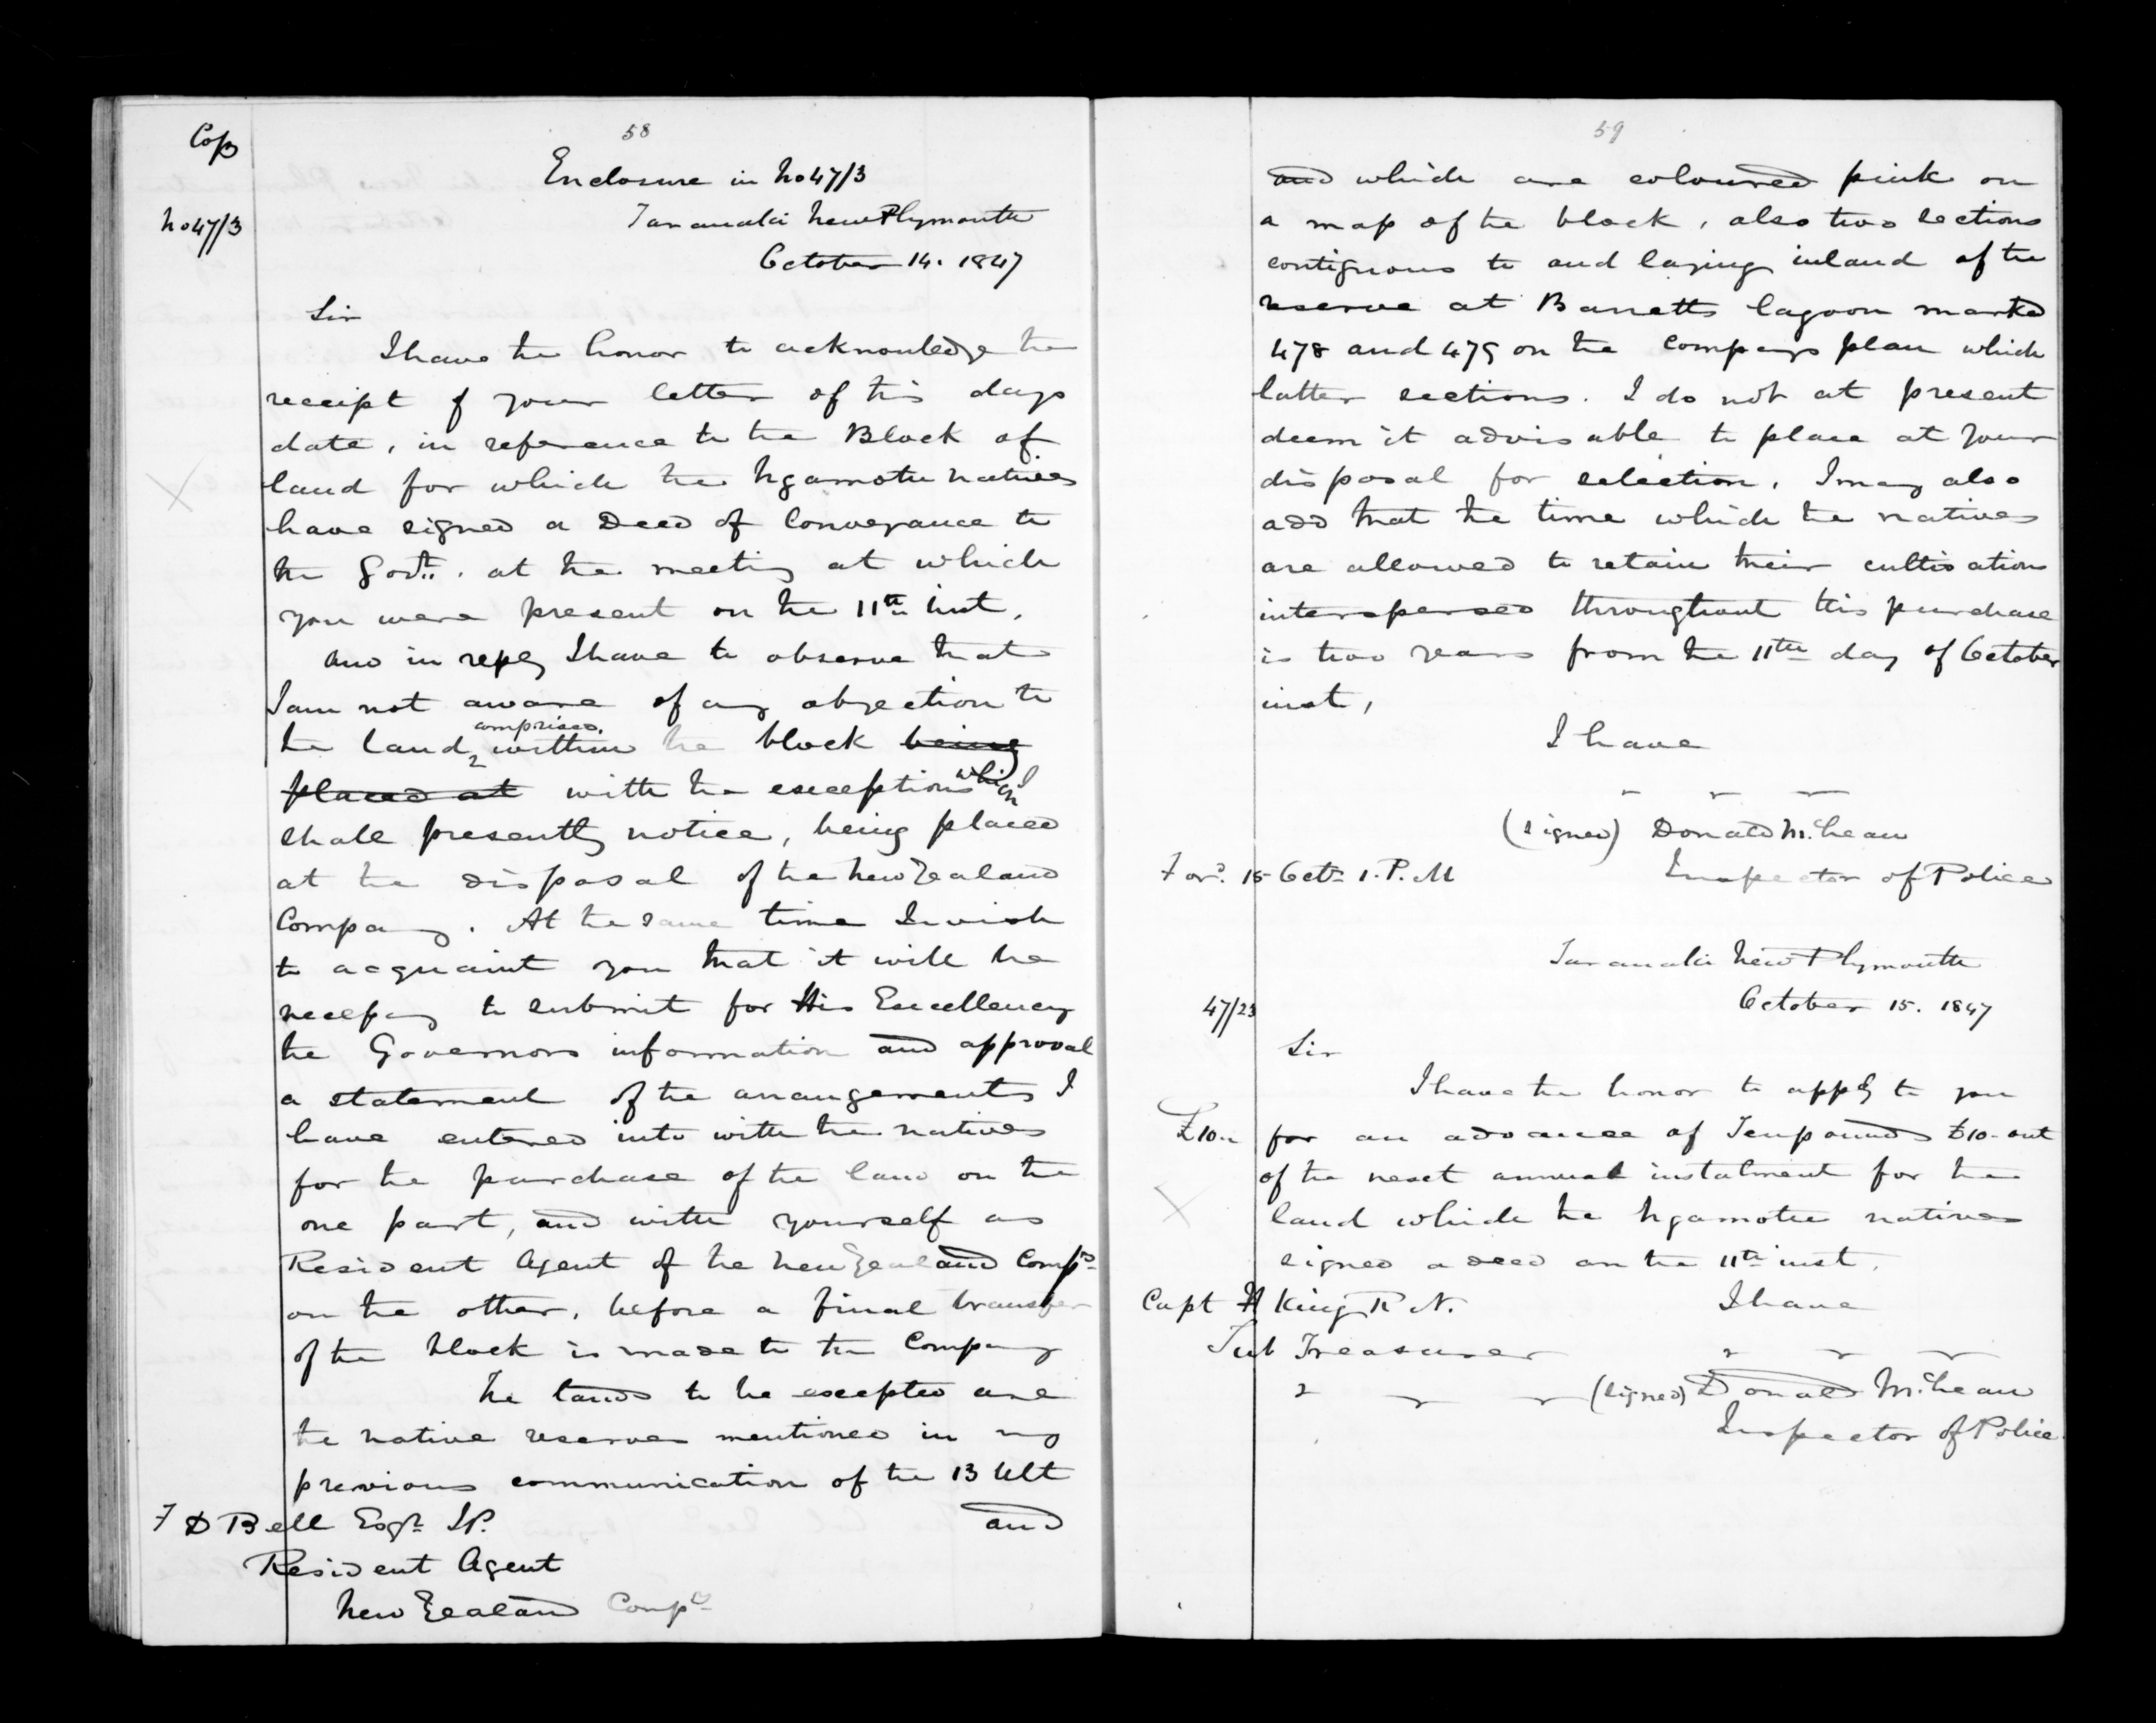 58
Copy
Enclosure in No 47/3
No 47/3
Taranaki New Plymouth
October 14. 1847
Sir
I have the honor to acknowledge the
receipt of your letter of this days
date, in reference to the Block of
land for which the Ngamotu natives
have signed a Deed of Conveyance to
the Govt. at the meeting at which
you were present on the 11th Inst.
And in reply I have to observe that
I am not aware of any objection to
the land comprised within the block being
placed at with the exceptions which I
shall presently notice, being placed
at the disposal of the New Zealand
Company. At the same time I wish
to acquaint you that it will be
necessary to submit for His Excellency
the Governors information and approval
a statement of the arrangements I
have entered into with the natives
for the purchase of the land on the
one part, and with yourself as
Resident Agent of the New Zealand Compy
on the other, before a final transfer
of the block is made to the Company
The lands to be excepted are
the native reserves mentioned in my
previous communication of the 13 Ult
and
F D Bell Esqr J.P.
Resident Agent
New Zealand Compy
59
and which are coloured pink on
a map of the block, also two sections
contiguous to and laying inland of the
reserve at Barretts lagoon marked
478 and 479 on the Companys plan which
latter sections. I do not at present
deem it advisable to place at your
disposal for selection. I may also
add that the time which the natives
are allowed to retain their cultivations
interspersed throughout this purchase
is two years from the 11th day of October
inst,
I have
" " "
(signed) Donald McLean
Inspector of Police
Ford. 15 Octr 1. P.M
Taranaki New Plymouth
October 15. 1847
47/23
Sir
I have the honor to apply to you
£10..
for an advance of Ten pounds £10- out
of the next annual instalment for the
land which the Ngamotu natives
signed a deed on the 11th inst.
Capt H King R N.
I have
Sub Treasurer
" " "
" " "
(signed) Donald McLean
Inspector of Police